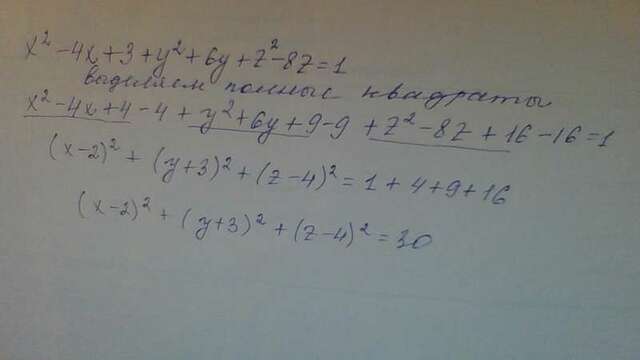 x² - 4x + 3 + y² + 6y + z² - 8z = 1
выделяем полные квадраты
x² - 4x + 4 - 4 + y² + 6y + 9 - 9 + z² - 8z + 16 - 16 = 1
(x - 2)² + (y + 3)² + (z - 4)² = 1 + 4 + 9 + 16
(x - 2)² + (y + 3)² + (z - 4)² = 30